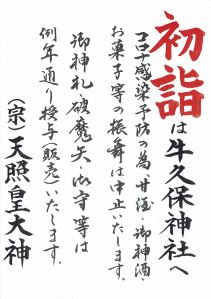 初詣は牛久保神社へ
コロナ感染予防の為、甘酒・御神酒・
お菓子等の振舞は中止いたします。
御神札破魔矢御守等は
例年通り授与(販売)いたします。
(宗)天照皇大神